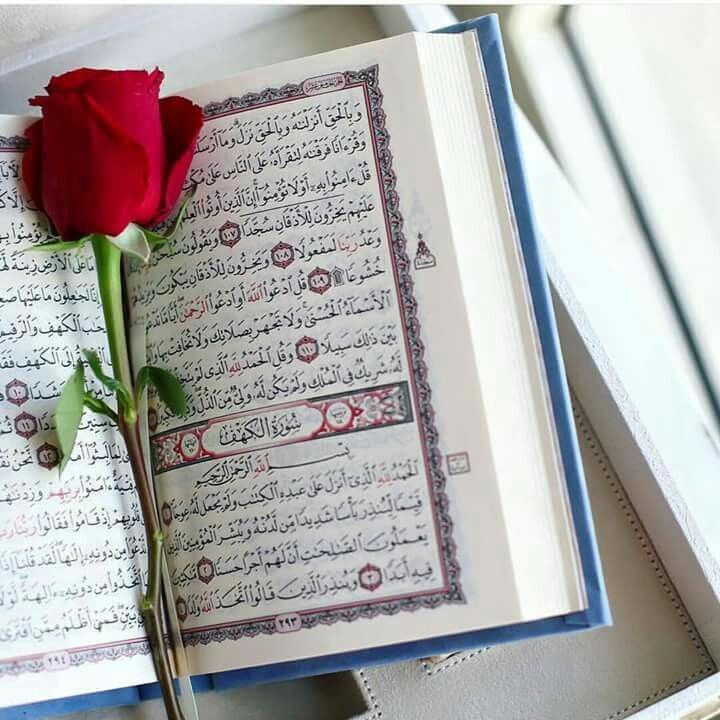 وَبِٱلْحَقِّ أَنزَلْنَٰهُ وَبِٱلْحَقِّ نَزَلَ وَمَآ
وَقُرْءَانًا فَرَقْنَٰهُ لِتَقْرَأَهُۥ عَلَى ٱلنَّاسِ عَلَىٰ
قُلْ ءَامِنُوا۟ بِهِۦٓ أَوْ لَا تُؤْمِنُوٓا۟ إِنَّ ٱلَّذِينَ أُوتُوا۟
عَلَيْهِمْ يَخِرُّونَ لِلْأَذْقَانِ سُجَّدًا ١٠٧ وَيَقُولُونَ سُبْحَٰنَ
وَعْدُ رَبِّنَا لَمَفْعُولًا ١٠٨ وَيَخِرُّونَ لِلْأَذْقَانِ يَبْكُونَ وَيَزِيدُهُمْ
خُشُوعًا ۩ ١٠٩ قُلِ ٱدْعُوا۟ ٱللَّهَ أَوِ ٱدْعُوا۟ ٱلرَّحْمَٰنَ أَيًّا مَّا تَدْعُوا۟
ٱلْأَسْمَآءُ ٱلْحُسْنَىٰ وَلَا تَجْهَرْ بِصَلَاتِكَ وَلَا تُخَافِتْ بِهَا
بَيْنَ ذَٰلِكَ سَبِيلًا ١١٠ وَقُلِ ٱلْحَمْدُ لِلَّهِ ٱلَّذِى لَمْ
لَّهُۥ شَرِيكٌ فِى ٱلْمُلْكِ وَلَمْ يَكُن لَّهُۥ وَلِىٌّ مِّنَ ٱلذُّلِّ
سُورَةُ ٱلْكَهْفِ
بِسْمِ ٱللَّهِ ٱلرَّحْمَٰنِ ٱلرَّحِيمِ
ٱلْحَمْدُ لِلَّهِ ٱلَّذِىٓ أَنزَلَ عَلَىٰ عَبْدِهِ ٱلْكِتَٰبَ وَلَمْ يَجْعَل لَّهُۥ عِوَجَا ١
قَيِّمًا لِّيُنذِرَ بَأْسًا شَدِيدًا مِّن لَّدُنْهُ وَيُبَشِّرَ ٱلْمُؤْمِنِينَ ٱلَّذِينَ
يَعْمَلُونَ ٱلصَّٰلِحَٰتِ أَنَّ لَهُمْ أَجْرًا حَسَنًا ٢ مَّٰكِثِينَ
فِيهِ أَبَدًا ٣ وَيُنذِرَ ٱلَّذِينَ قَالُوا۟ ٱتَّخَذَ ٱللَّهُ وَلَدًا ٤
٢٩٣
ٱلْأَرْضِ زِينَةً
لَجَٰعِلُونَ مَا عَلَيْهَا
ٱلْكَهْفِ وَٱلرَّقِيمِ
إِلَى ٱلْكَهْفِ
١٠
١١
١٢ نَّحْنُ
ءَامَنُوا۟ بِرَبِّهِمْ
إِذْ قَامُوا۟ فَقَالُوا۟ رَبُّنَا
مِن دُونِهِۦٓ إِلَٰهًا لَّقَدْ قُلْنَآ
مِن دُونِهِۦٓ ءَالِهَةً
فَمَنْ أَظْلَمُ مِمَّنِ ٱفْتَرَىٰ
٢٩٤